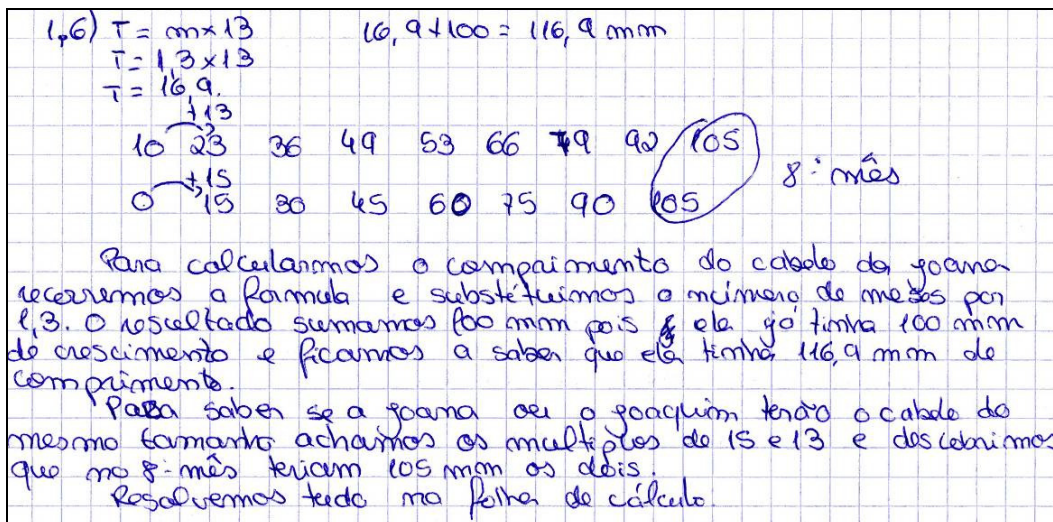 1,6) T = m×13 16,9+100 = 116,9 mm
T = 1,3×13
T = 16,9.
+13
10 23 36 49 53 66 79 92 105
+15
8º mês
0 15 30 45 60 75 90 105
Para calcularmos o compaimento do cabelo da Joana
recorremos a formula e substétuimos o número de meses por
1,3. O resultado sumamos 100 mm pois ela já tinha 100 mm
de crescimento e ficamos a saber que ela tinha 116,9 mm de
comprimento.
Para saber se a Joana ou o Joaquim terão o cabelo do
mesmo tamanho achamos os multiplos de 15 e 13 e descobrimos
que no 8º mês teriam 105 mm os dois.
Resolvemos tudo na folha de cálculo.